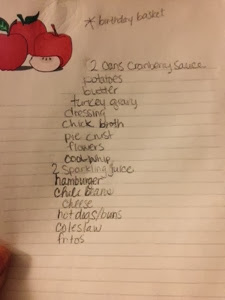 * birthday basket
2 cans cranberry sauce
potatoes
butter
turkey gravy
dressing
chick broth
pie crust
flowers
cool whip
2 Sparkling juice
hamburger
chili beans
cheese
hot dogs/buns
coleslaw
fritos